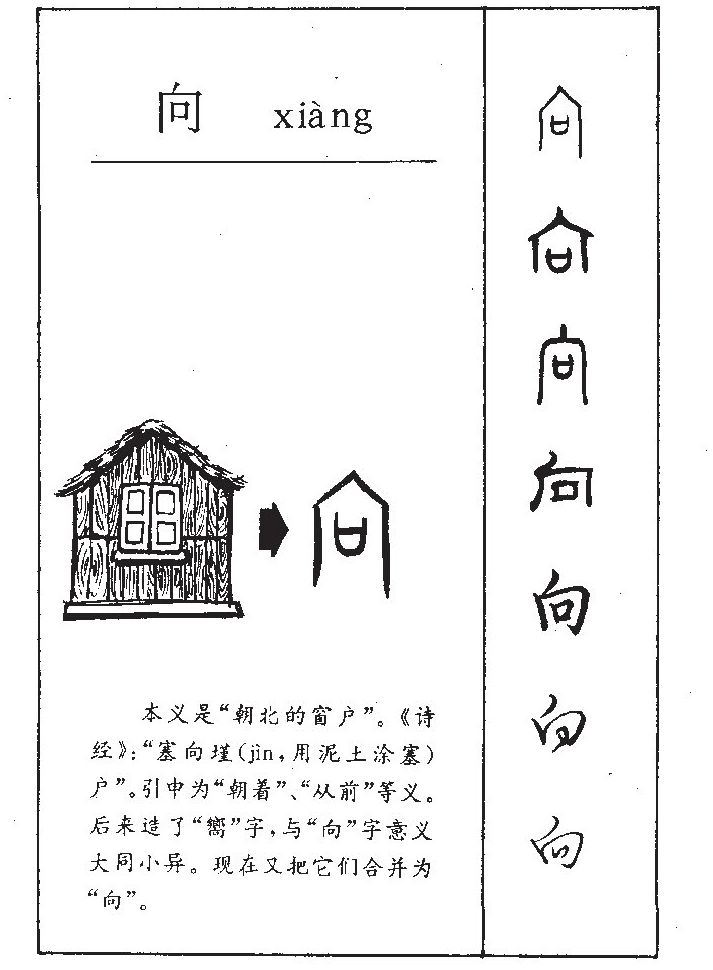 向 xiàng
本义是“朝北的窗户”。《诗
经》:“塞向瑾(jìn,用泥土涂塞)
户”。引申为“朝着”、“从前”等义。
后来造了“嚮”字,与“向”字意义
大同小异。现在又把它们合并为
“向”。
向
向
向
向
向
向
向
向